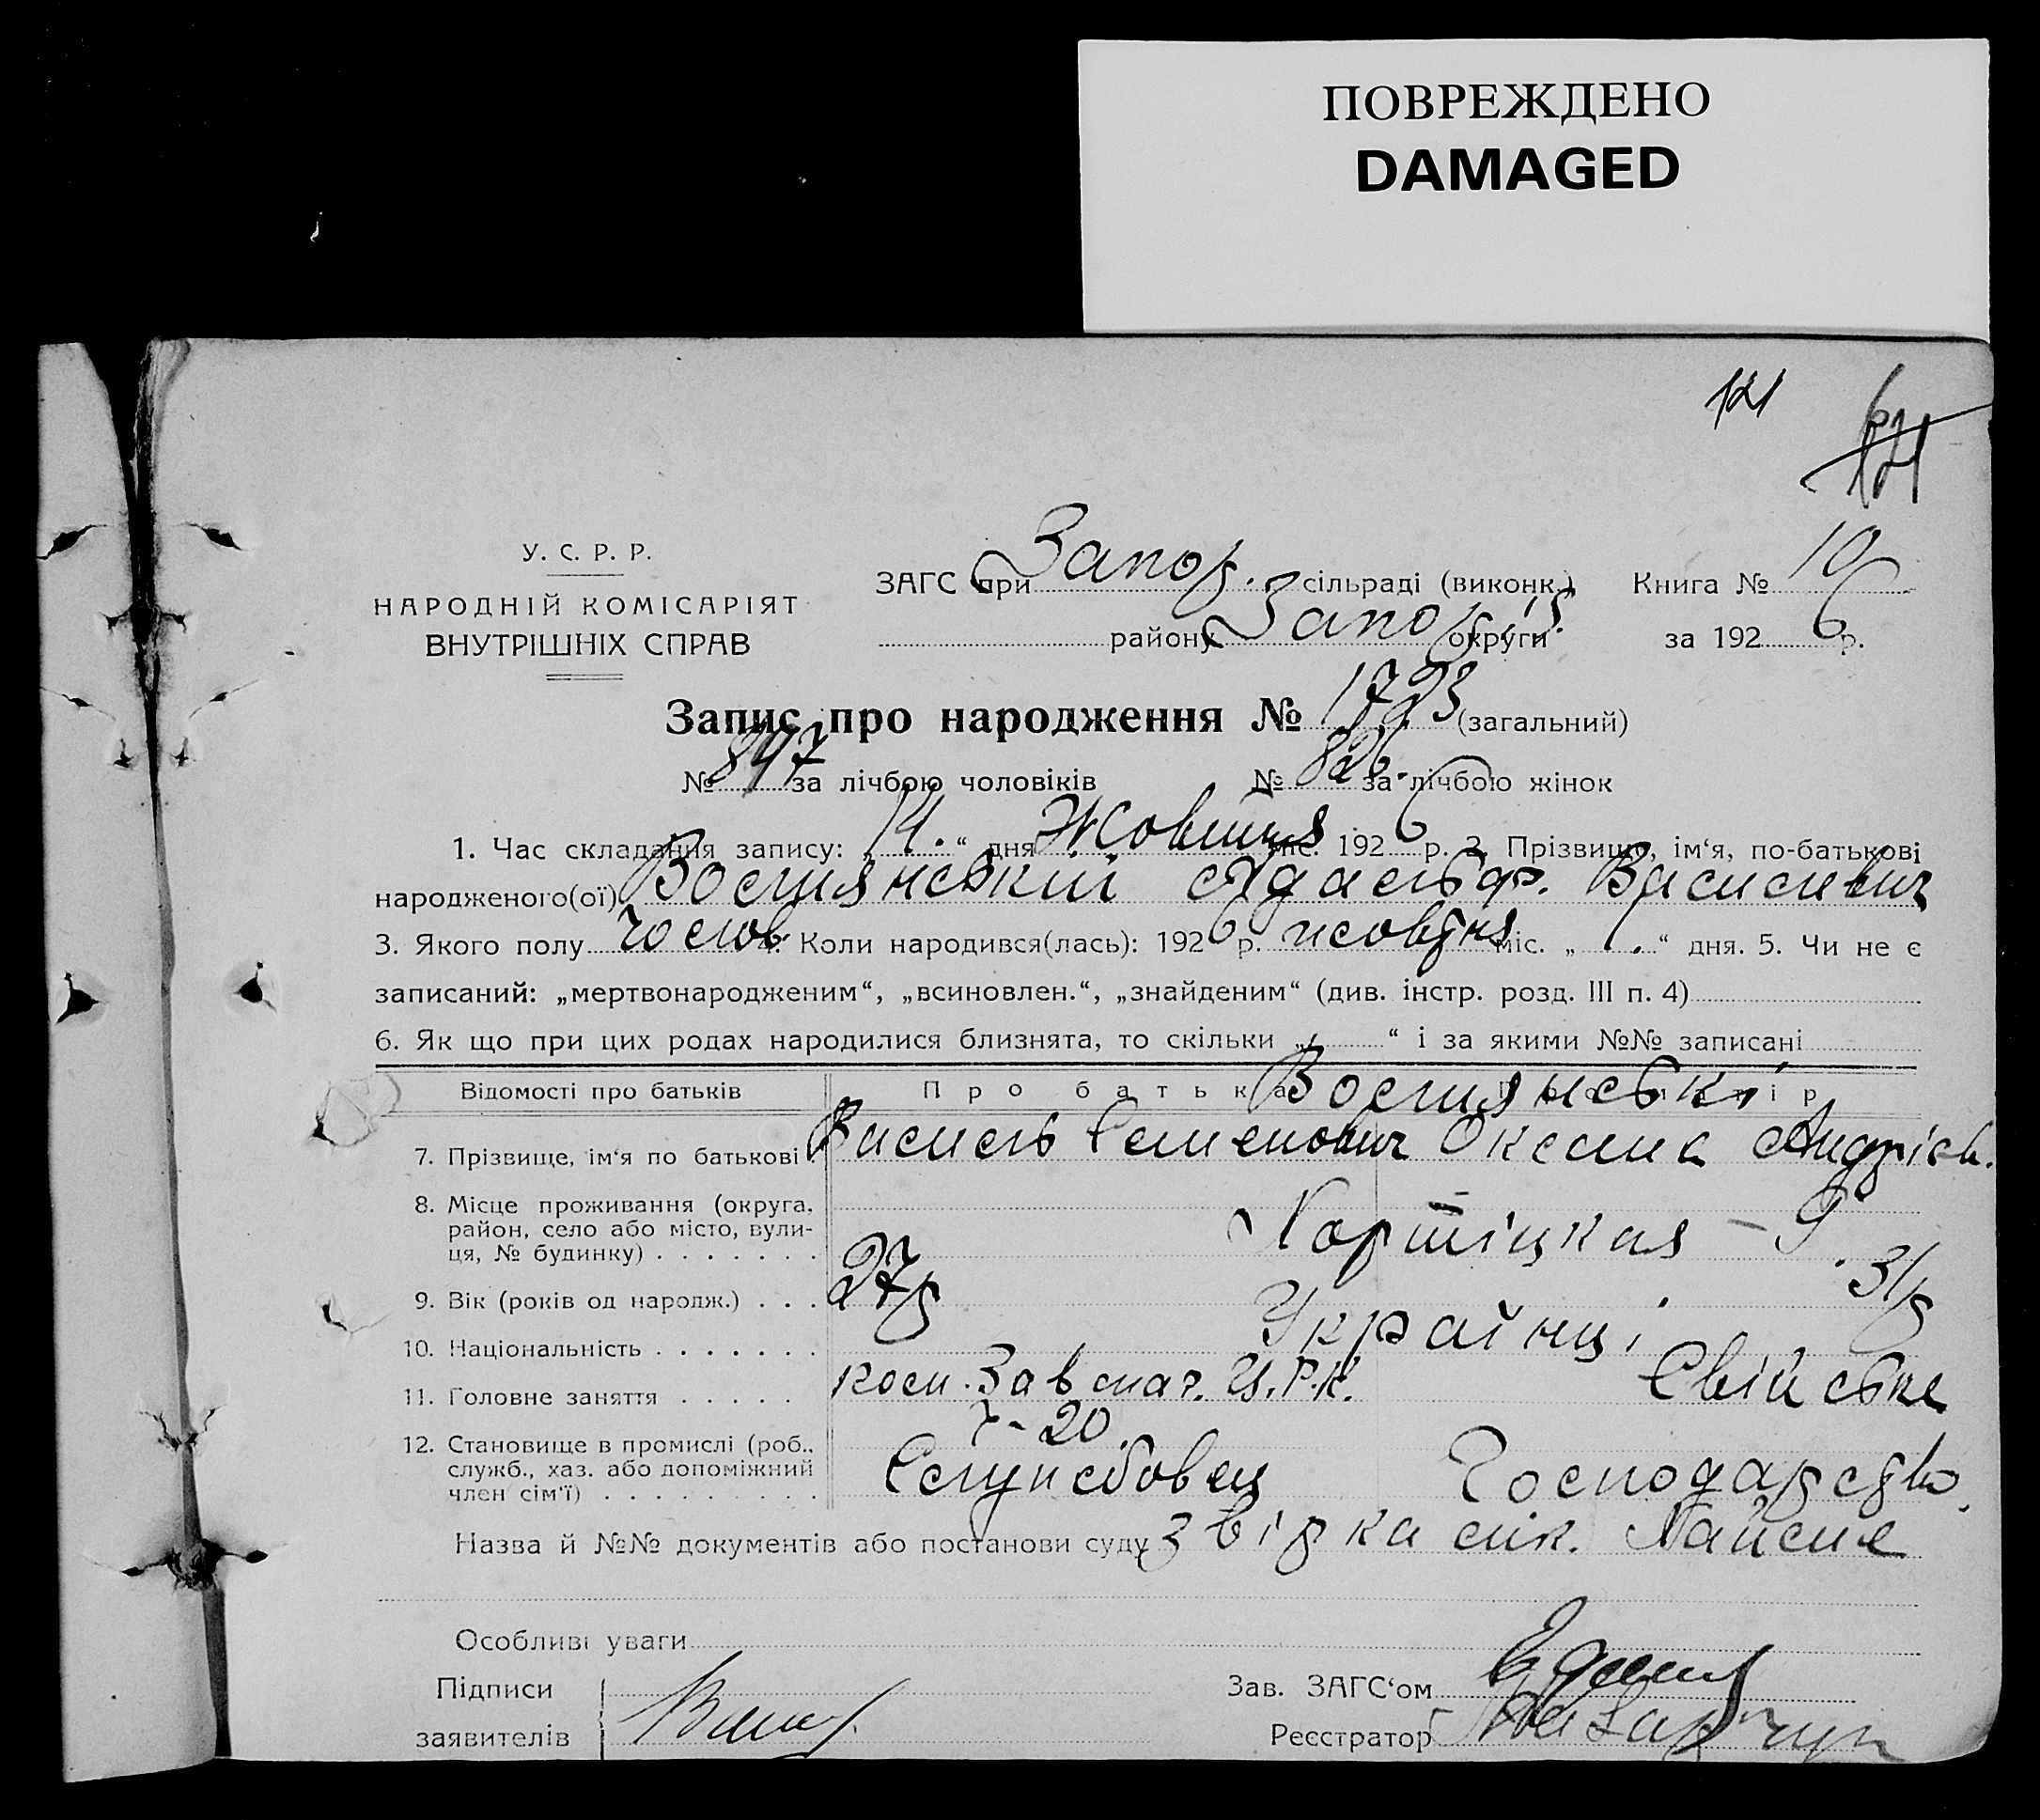 ПОВРЕЖДЕНО
DAMAGED
121
У. С. Р. Р.
НАРОДНІЙ КОМІСАРІЯТ
ВНУТРІШНІХ СПРАВ
ЗАГС при Запор. сільраді (виконк.) Книга № 10
району Запоріз. округи за 1926 р.
Запис про народження № 1723 (загальний)
№ 897 за лічбою чоловіків № 826. за лічбою жінок
1. Час складання запису: „14.“ дня Жовтня міс. 1926 р. 2. Прізвище, ім‘я, по-батькові
народженого(ої) Василевич
3. Якого полу чолов. 4. Коли народився(лась): 1926 р. жовтня міс. „1.“ дня. 5. Чи не є
записаний: „мертвонародженим“, „всиновлен.“, „знайденим“ (див. інстр. розд. III п. 4)
6. Як що при цих родах народилися близнята, то скільки „ “ і за якими №№ записані
Відомості про батьків Про батька
7. Прізвище, ім‘я по батькові Василь Семенович Оксана Андріїв.
8. Місце проживання (округа,
район, село або місто, вули-
ця, № будинку) Хортіцкая – 9
9. Вік (років од народж.) 27р 31/р
10. Національність Українці
11. Головне заняття Зав маг. Ц.Р.К. Свійське
ч - 20.
12. Становище в промислі (роб.,
служб., хаз. або допоміжний
член сім‘ї) Службовец Господарство.
Назва й №№ документів або постанови суду звірка
Особливі уваги
Підписи
заявителів
Зав. ЗАГС‘ом
Реєстратор